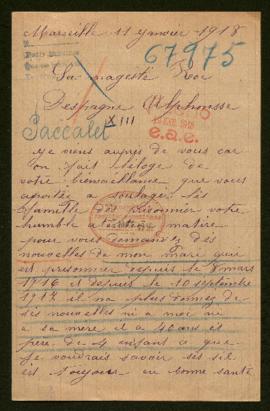 Marseille 11 janvier 1918
67975
Sa magesté Roi
Despagne Alphonsse
XIII
Paccalet
e.a.e.
je viens aupres de vous car
on fait léloge de
votre bienveillance que vous
aportée a soulagé les
famille des prisonnier votre
humble
pour vous demandez des
nouvelles de mon mari qui
est prisonnier depuis le 8 mars
1916 et depuis le 10 septembre
1917 il na plus donnez de
ses nouvelles ni a moi ni
a sa mere il a 40 ans et
pere de 4 enfant a que
je voudrais savoir sis sil
est toujours en bonne santé